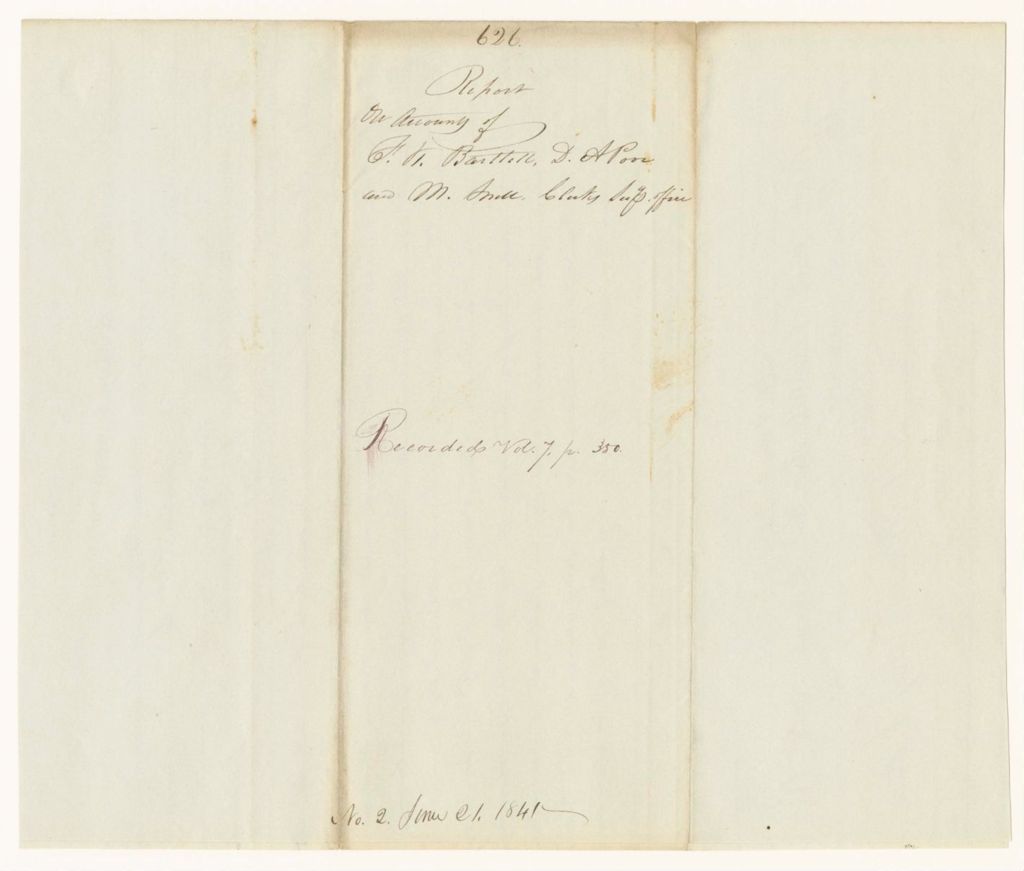 626.
Report
On Accounts of
F. H. Bartlett, D. A Poor
and M. Snell, Clerks Secy's. office
Recorded Vol. 7. p. 350.
No. 2. June 21. 1841